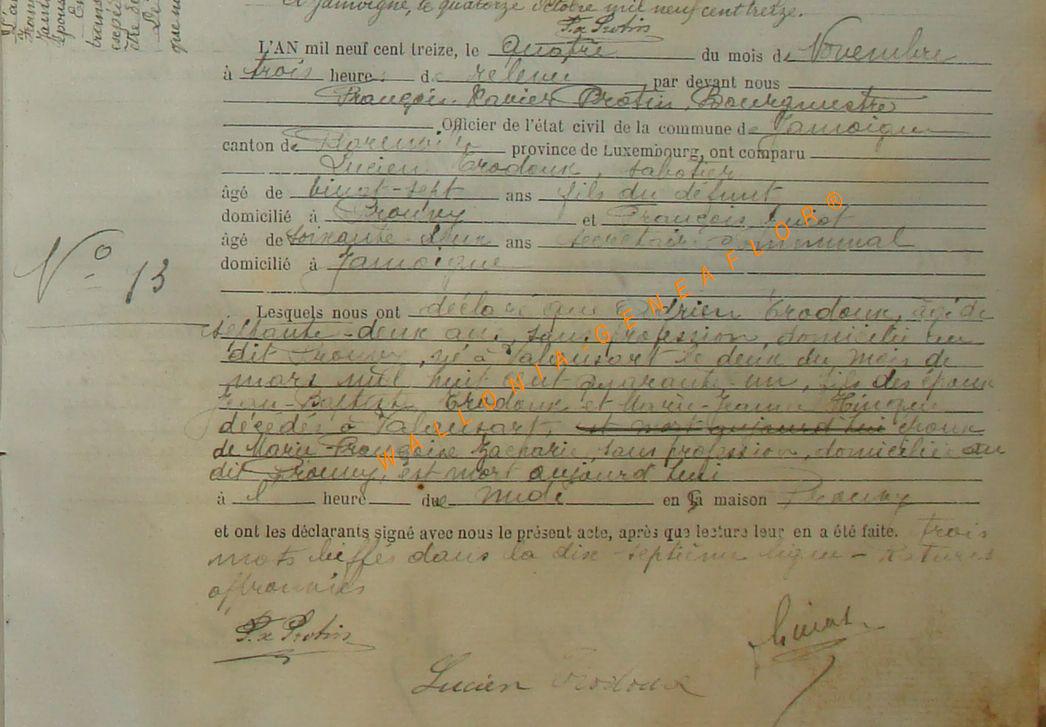 A Jamoigne, le quatorze octobre mil neuf cent treize.
F.x Protin
L'AN mil neuf cent treize, le quatre du mois de Novembre
à trois heures de relevée par devant nous
François Xavier Protin, Bourgmestre
Officier de l'état civil de la commune de Jamoigne
canton de Florenville province de Luxembourg, ont comparu
Lucien Trodoux, sabotier
âgé de vingt-sept ans fils du défunt
domicilié à Prouvy et François
âgé de soixante-deux ans secrétaire communal
domicilié à Jamoigne
N° 13
Lesquels nous ont déclaré que Adrien Trodoux, âgé de
septante-deux ans, sans profession, domicilié au
dit Prouvy, né à Valansart le deux du mois de
mars mil huit cent quarante-un, fils des époux
Jean-Baptiste Trodoux et Marie-Jeanne
décédés à Valansart, est mort aujourd'hui époux
de Marie Françoise Zacharie, sans profession, domiciliée au
dit Prouvy, est mort aujourd'hui
à heure du midi en sa maison Prouvy
et ont les déclarants signé avec nous le présent acte, après que lecture leur en a été faite. trois
mots biffés dans la dix-septième ligne - Ratures
approuvées
F.x Protin
Lucien Trodoux
WALLONIA GENEAFLOR®